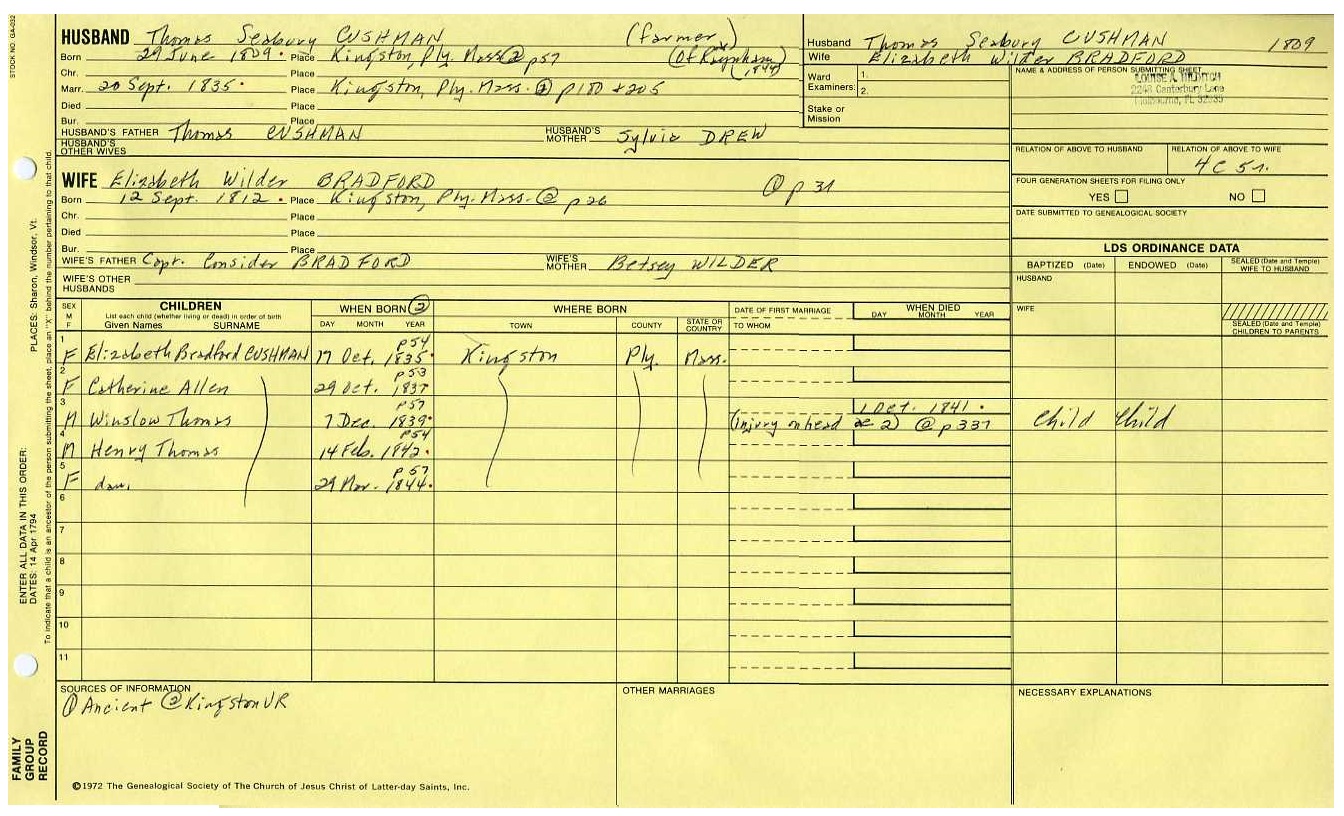 STOCK NO. GA-032
HUSBAND Thomas Seabury CUSHMAN (farmer)
Born 29 June 1809. Place Kingston, Ply. Mass ② p57 (Of Raynham) (1844)
Chr. Place
Marr. 20 Sept. 1835. Place Kingston, Ply. Mass. ② p180 + 205
Died Place
Bur. Place
HUSBAND'S FATHER Thomas CUSHMAN HUSBAND'S MOTHER Sylvia DREW
HUSBAND'S OTHER WIVES
Husband Thomas Seabury CUSHMAN 1809
Wife Elizabeth Wilder BRADFORD
Ward Examiners: 1.
2.
Stake or Mission
NAME & ADDRESS OF PERSON SUBMITTING SHEET
LOUISE A.
2248 Canterbury Lane
Melbourne, FL 32935
RELATION OF ABOVE TO HUSBAND
RELATION OF ABOVE TO WIFE
4C 5r.
FOUR GENERATION SHEETS FOR FILING ONLY
YES NO
DATE SUBMITTED TO GENEALOGICAL SOCIETY
WIFE Elizabeth Wilder BRADFORD ① p 31
Born 12 Sept. 1812. Place Kingston, Ply. Mass. ② p26
Chr. Place
Died Place
Bur. Place
WIFE'S FATHER Capt. Consider BRADFORD WIFE'S MOTHER Betsey WILDER
WIFE'S OTHER HUSBANDS
LDS ORDINANCE DATA
BAPTIZED (Date) ENDOWED (Date) SEALED (Date and Temple) WIFE TO HUSBAND
HUSBAND
WIFE
SEALED (Date and Temple) CHILDREN TO PARENTS
SEX M F
CHILDREN
List each child (whether living or dead) in order of birth
Given Names SURNAME
WHEN BORN ②
DAY MONTH YEAR
WHERE BORN
TOWN COUNTY STATE OR COUNTRY
DATE OF FIRST MARRIAGE
TO WHOM
WHEN DIED
DAY MONTH YEAR
1 F Elizabeth Bradford CUSHMAN 17 Oct. 1835. p54 Kingston Ply. Mass.
2 F Catherine Allen 29 Oct. 1837 p53
3 M Winslow Thomas 7 Dec. 1839. p57 1 Oct. 1841.
(injury on head ae 2) @ p337 Child Child
4 M Henry Thomas 14 Feb. 1842. p54
5 F dau. 29 Mar. 1844. p57
6
7
8
9
10
11
SOURCES OF INFORMATION
① Ancient ② Kingston VR
OTHER MARRIAGES
NECESSARY EXPLANATIONS
©1972 The Genealogical Society of The Church of Jesus Christ of Latter-day Saints, Inc.
FAMILY
GROUP
RECORD
ENTER ALL DATA IN THIS ORDER:
DATES: 14 Apr 1794
PLACES: Sharon, Windsor, Vt.
To indicate that a child is an ancestor of the person submitting the sheet, place an "X" behind the number pertaining to that child.